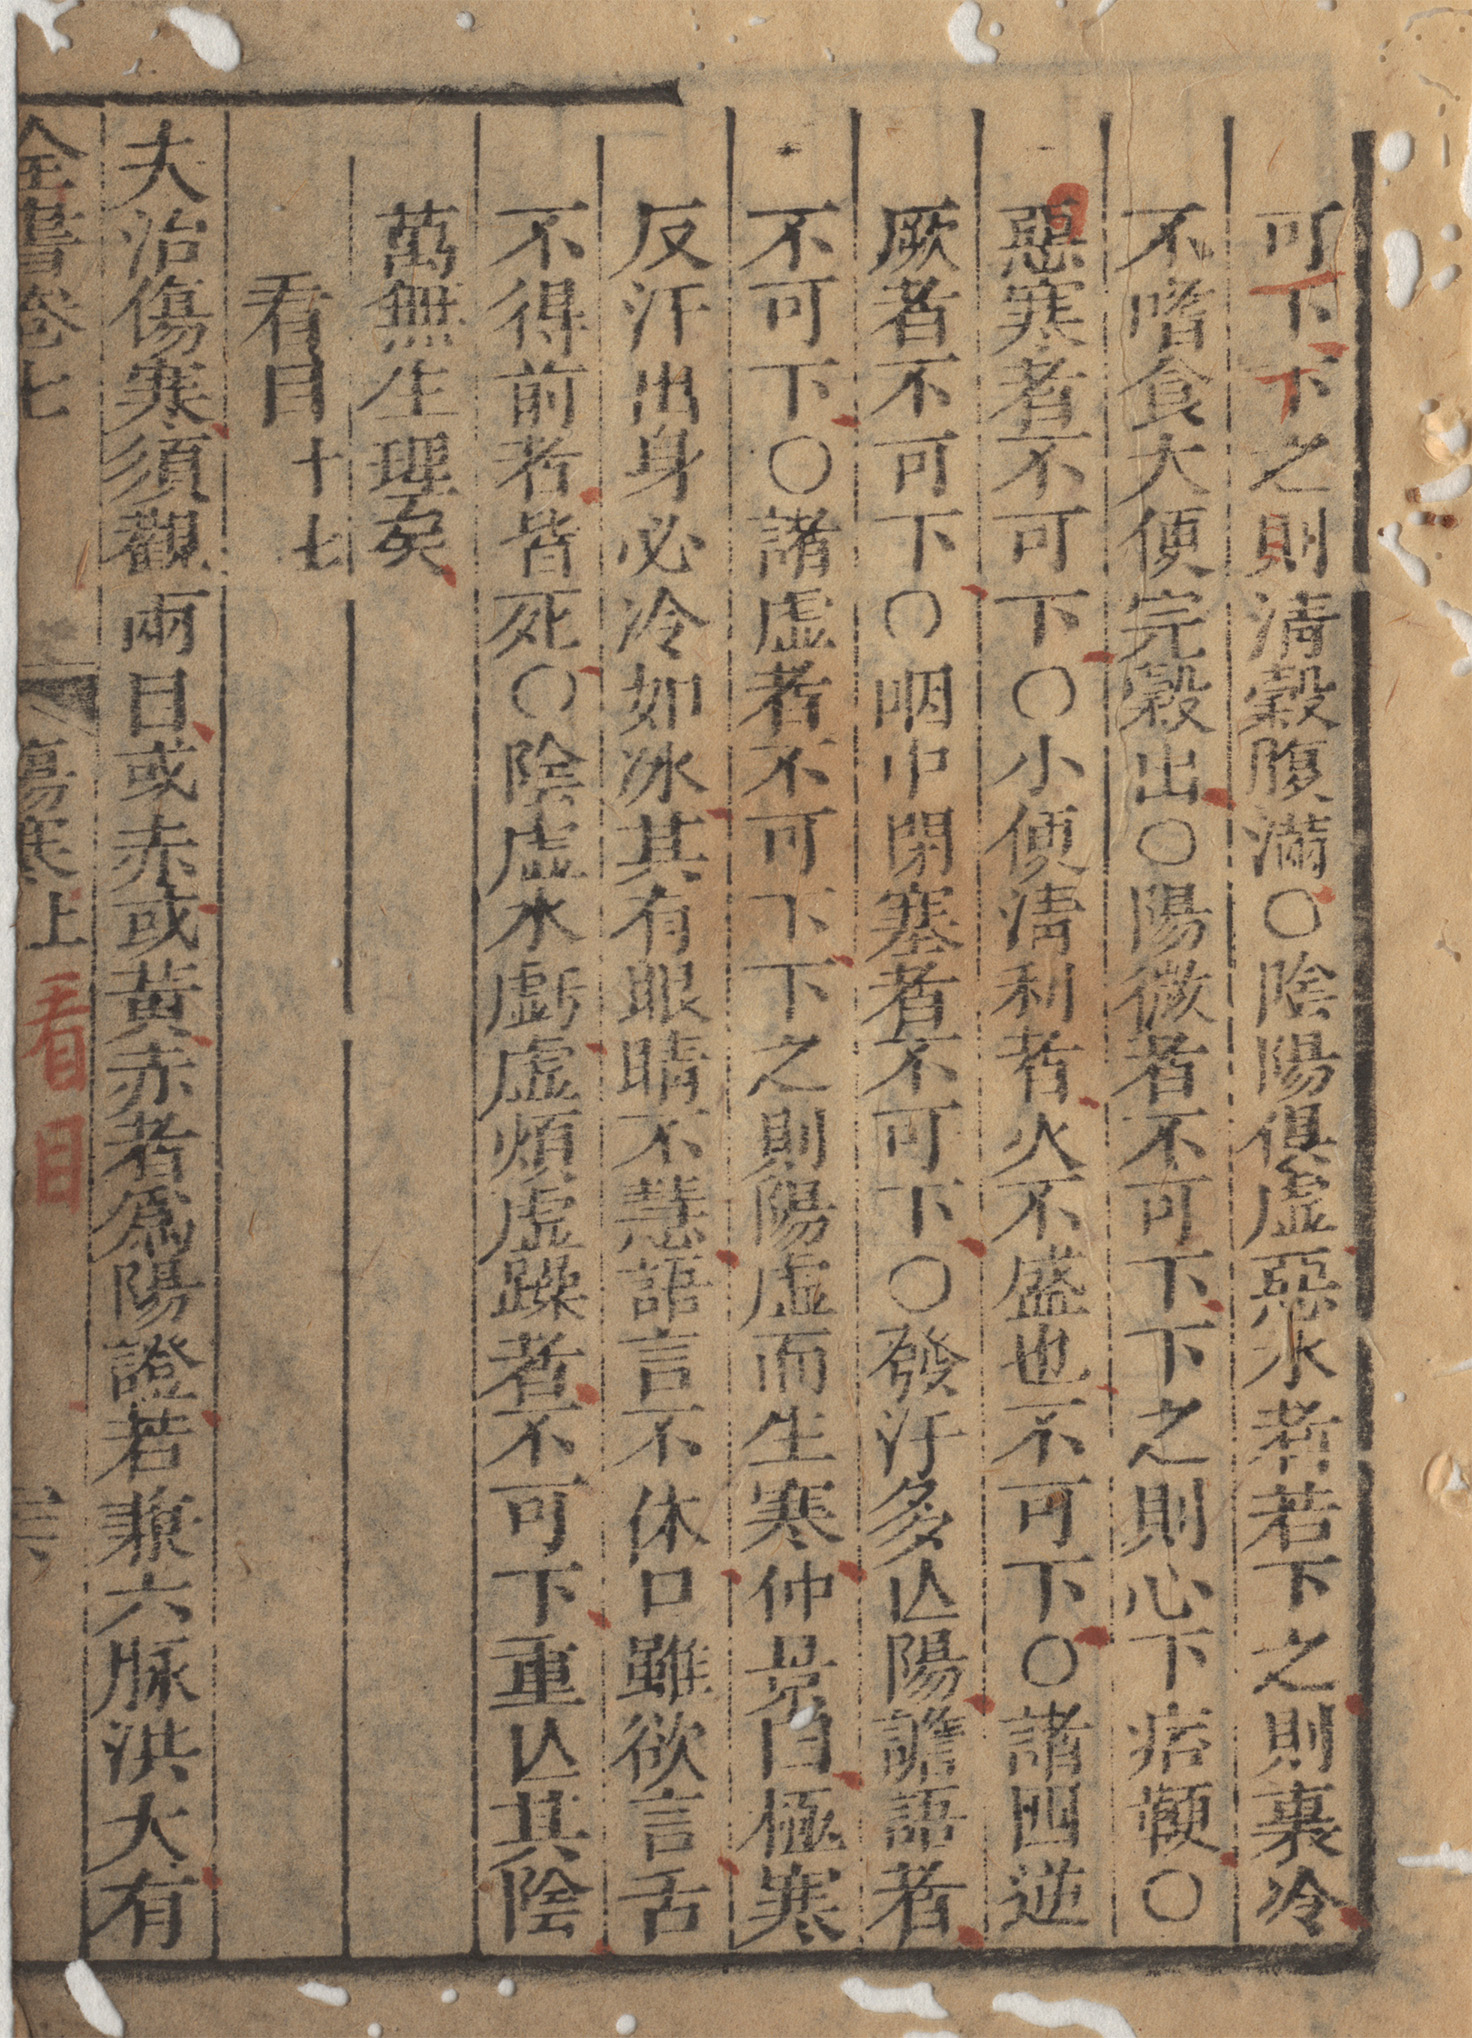 可下下之則清穀腹滿〇陰陽俱虛惡水者若下之則裏冷
不嗜食大便完穀出〇陽微者不可下下之則心下痞鞕〇
惡寒者不可下〇小便清利者火不盛也不可下〇諸四逆
厥者不可下〇咽中閉塞者不可下〇發汗多亾陽譫語者
不可下〇諸虛者不可下下之則陽虛而生寒仲景曰極寒
反汗出身必冷如冰其有眼睛不慧語言不休口雖欲言舌
不得前者皆死〇陰虛水虧虛煩虛躁者不可下重亾其陰
萬無生理矣
看目十七
夫治傷寒須觀兩目或赤或黃赤者為陽證若兼六脉洪大有
全書卷七 傷寒上 看目